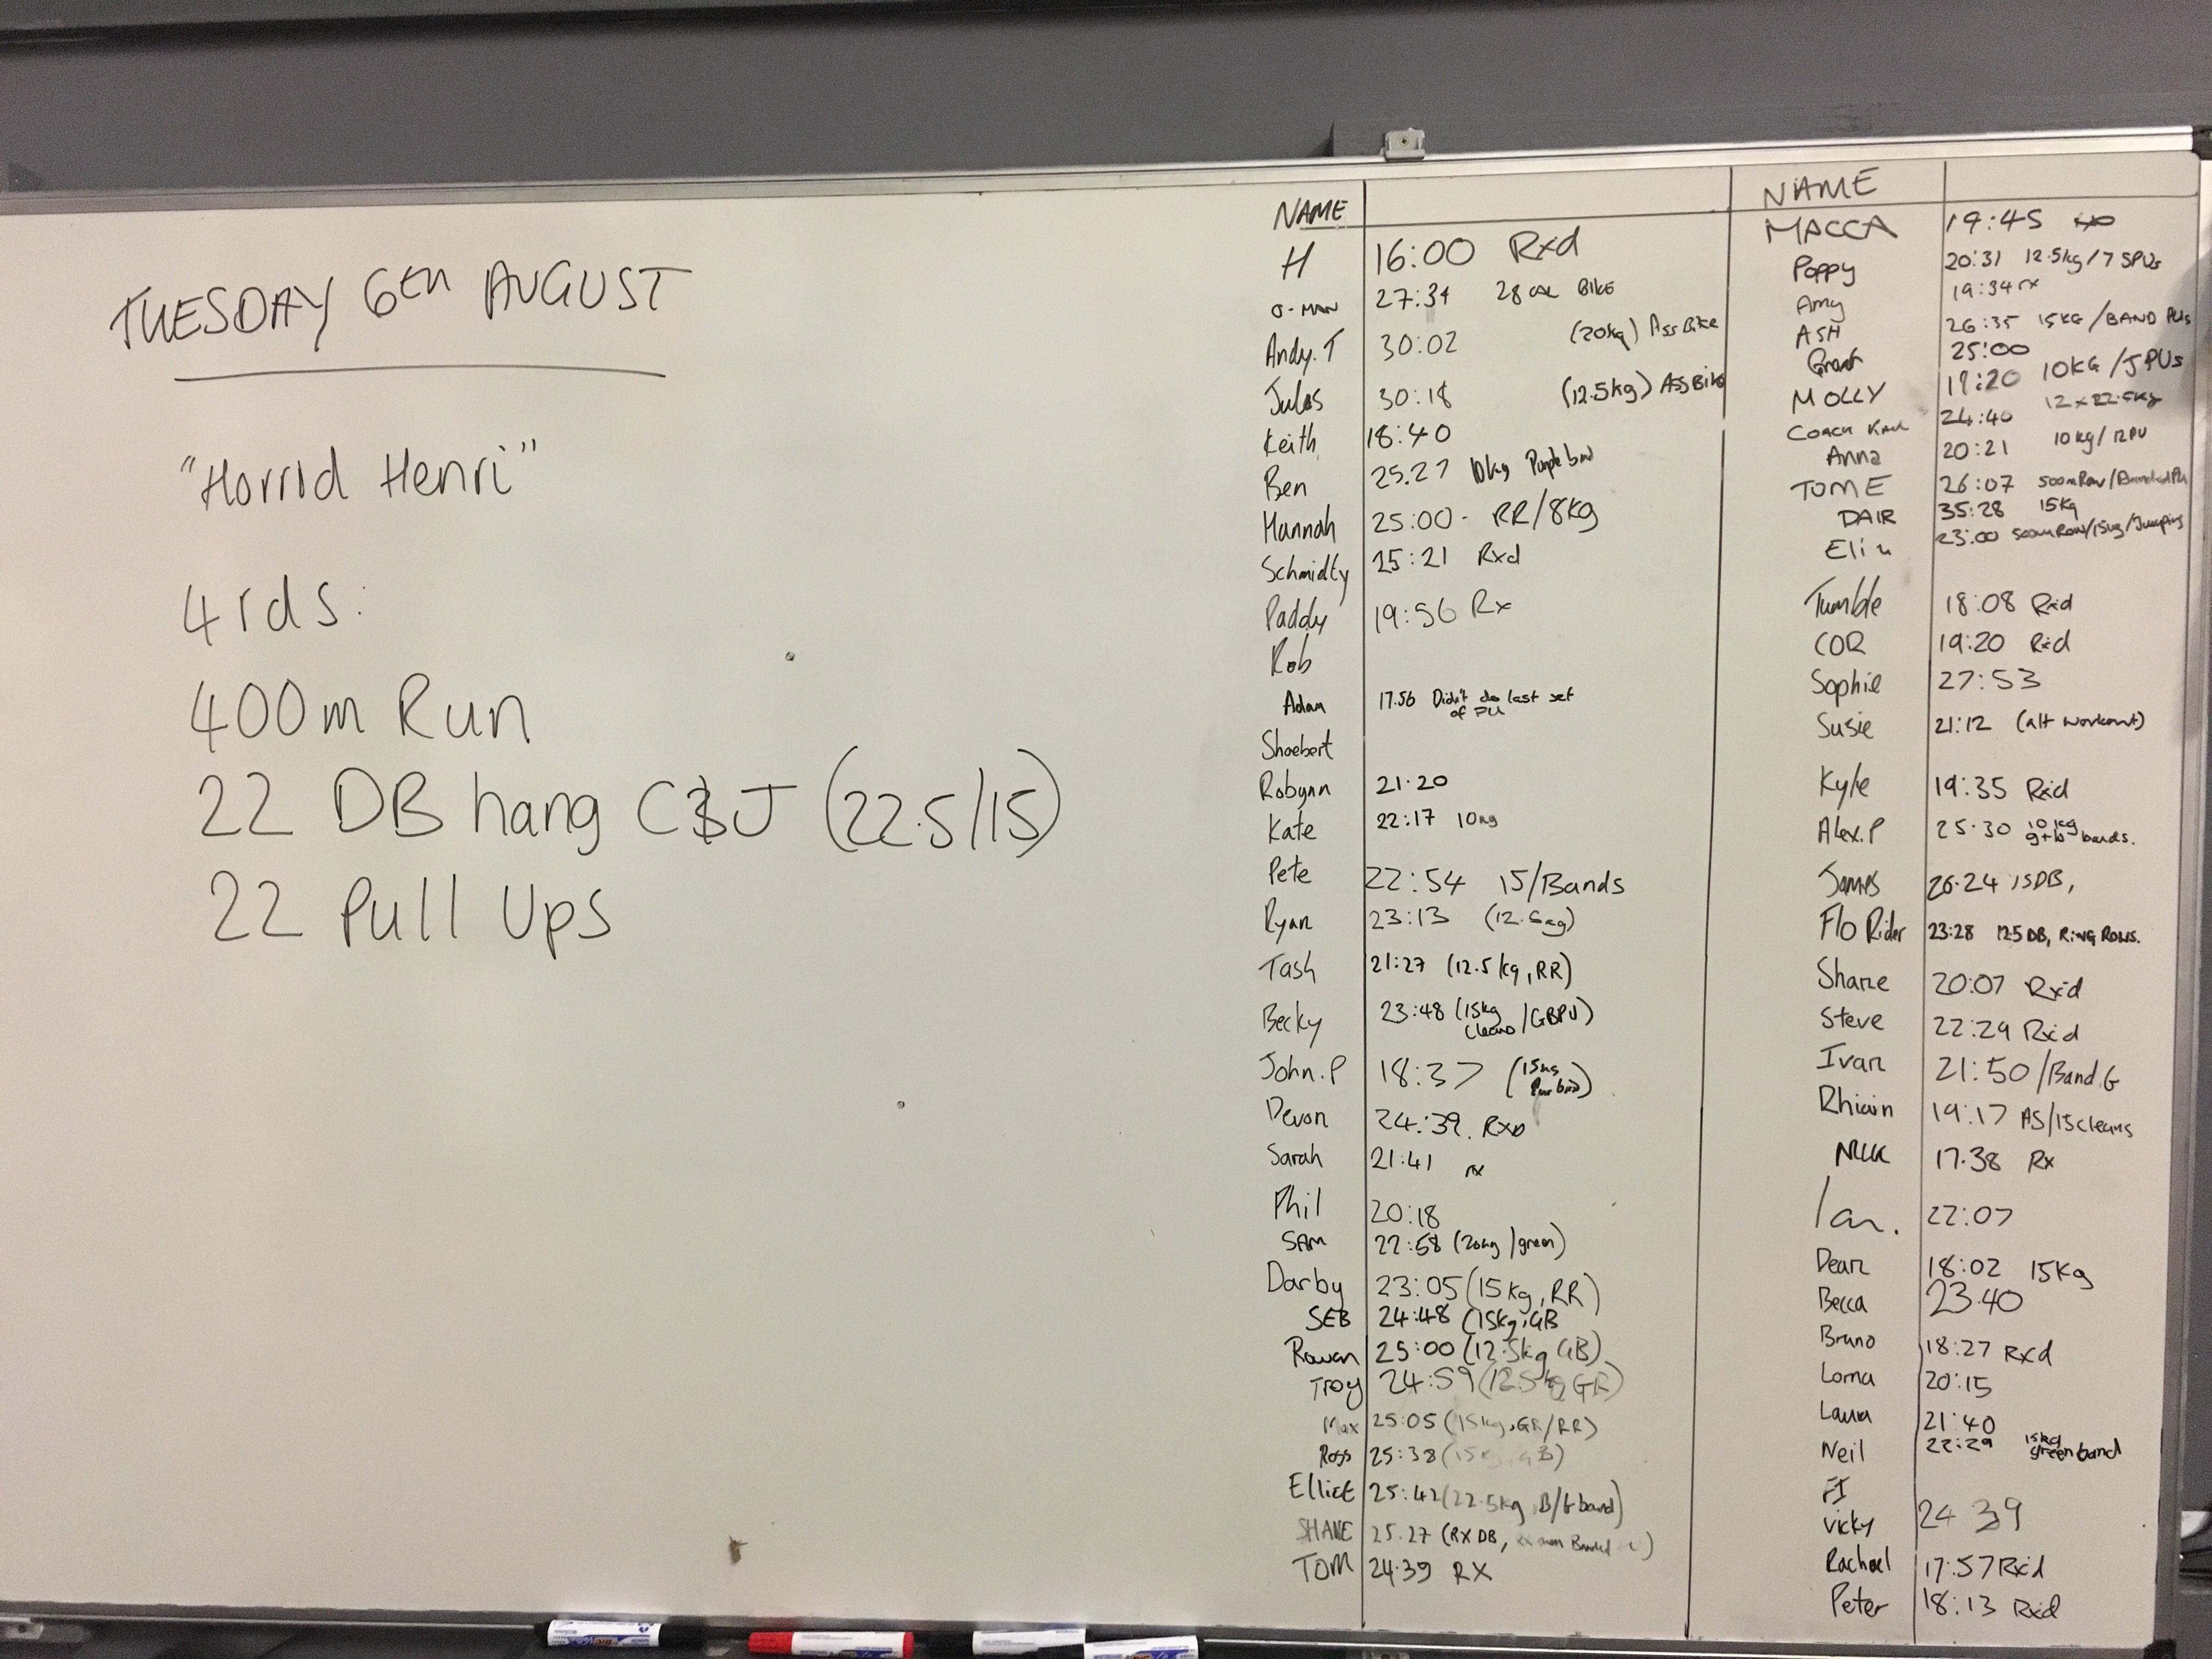 TUESDAY 6TH AUGUST
"Horrid Henri"
4 rds:
400m Run
22 DB hang C&J (22.5/15)
22 Pull Ups
NAME
H 16:00 Rxd
O-MAN 27:34 28 CAL BIKE
Andy.T 30:02 (20kg) Ass Bike
Jules 30:18 (12.5kg) Ass Bike
Keith 18:40
Ben 25.27 10kg Purple
Hannah 25:00 - RR/8kg
Schmidty 25:21 Rxd
Paddy 19:56 Rx
Rob
Adam 17.56 Didn't do last set
of PU
Shoebert
Robynn 21.20
Kate 22:17 10kg
Pete 22:54 15/Bands
Ryan 23:13 (12.5kg)
Tash 21:27 (12.5kg, RR)
Becky 23:48 (15kg
cleans/GBPU)
John.P 18:37 (15kg
Devon 24:39. RXD
Sarah 21:41 rx
Phil 20:18
SAM 22:58 (20kg/green)
Darby 23:05 (15kg, RR)
SEB 24:48 (15kg, GB
Rowan 25:00 (12.5kg GB)
Troy 24:59 (12.5kg
Max 25:05 (15kg, GR/RR)
Ross 25:38 (15kg GB)
Elliot 25:42 (22.5kg B/G band)
SHANE 25.27 (RX DB,
TOM 24:39 RX
NAME
MACCA 19:45
Poppy 20:31 12.5kg/7 SPUs
Amy 19:34 rx
ASH 26:35 15KG/BAND PUs
Grant 25:00
MOLLY 19:20 10KG/JPUs
COACH 24:40 12 x 22.5kg
Anna 20:21 10kg/12PU
TOM E 26:07 500m Row/Banded PU
DAIR 35:28 15kg
23:00 500m Row/15kg/Jumping
Tumble 18:08 Rxd
COR 19:20 Rxd
Sophie 27:53
Susie 21:12 (alt workout)
Kyle 19:35 Rxd
Alex.P 25.30 10kg
g+b bands.
James 26.24 15DB,
Flo Rider 23:28 12.5 DB, RING ROWS.
Share 20:07 Rxd
Steve 22:29 Rxd
Ivan 21:50/Band.G
Rhiain 19:17 AS/15 cleans
17.38 Rx
Ian. 22:07
Dean 18:02 15kg
Becca 23.40
Bruno 18:27 Rxd
Lorna 20:15
Laura 21:40
Neil 22:29 15kg
green band
FI
Vicky 24 39
Rachael 17:57 Rxd
Peter 18:13 Rxd